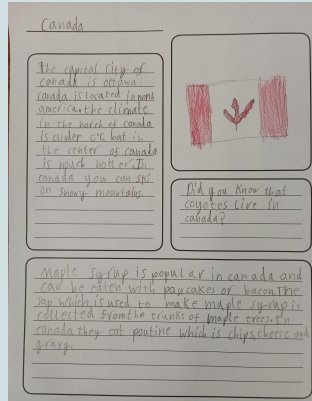 Canada
The capital city of
canada is ottawa
canada is located in north
america. the climate
in the north of canada
is under 0°c but in
the center of canada
is much hotter. In
canada you can ski
on snowy mountains.
Did you know that
coyotes live in
canada?
Maple syrup is popular in canada and
can be eaten with pancakes or bacon. The
sap which is used to make maple syrup is
collected from the trunks of maple trees. In
canada they eat poutine which is chips, cheese and
gravy.